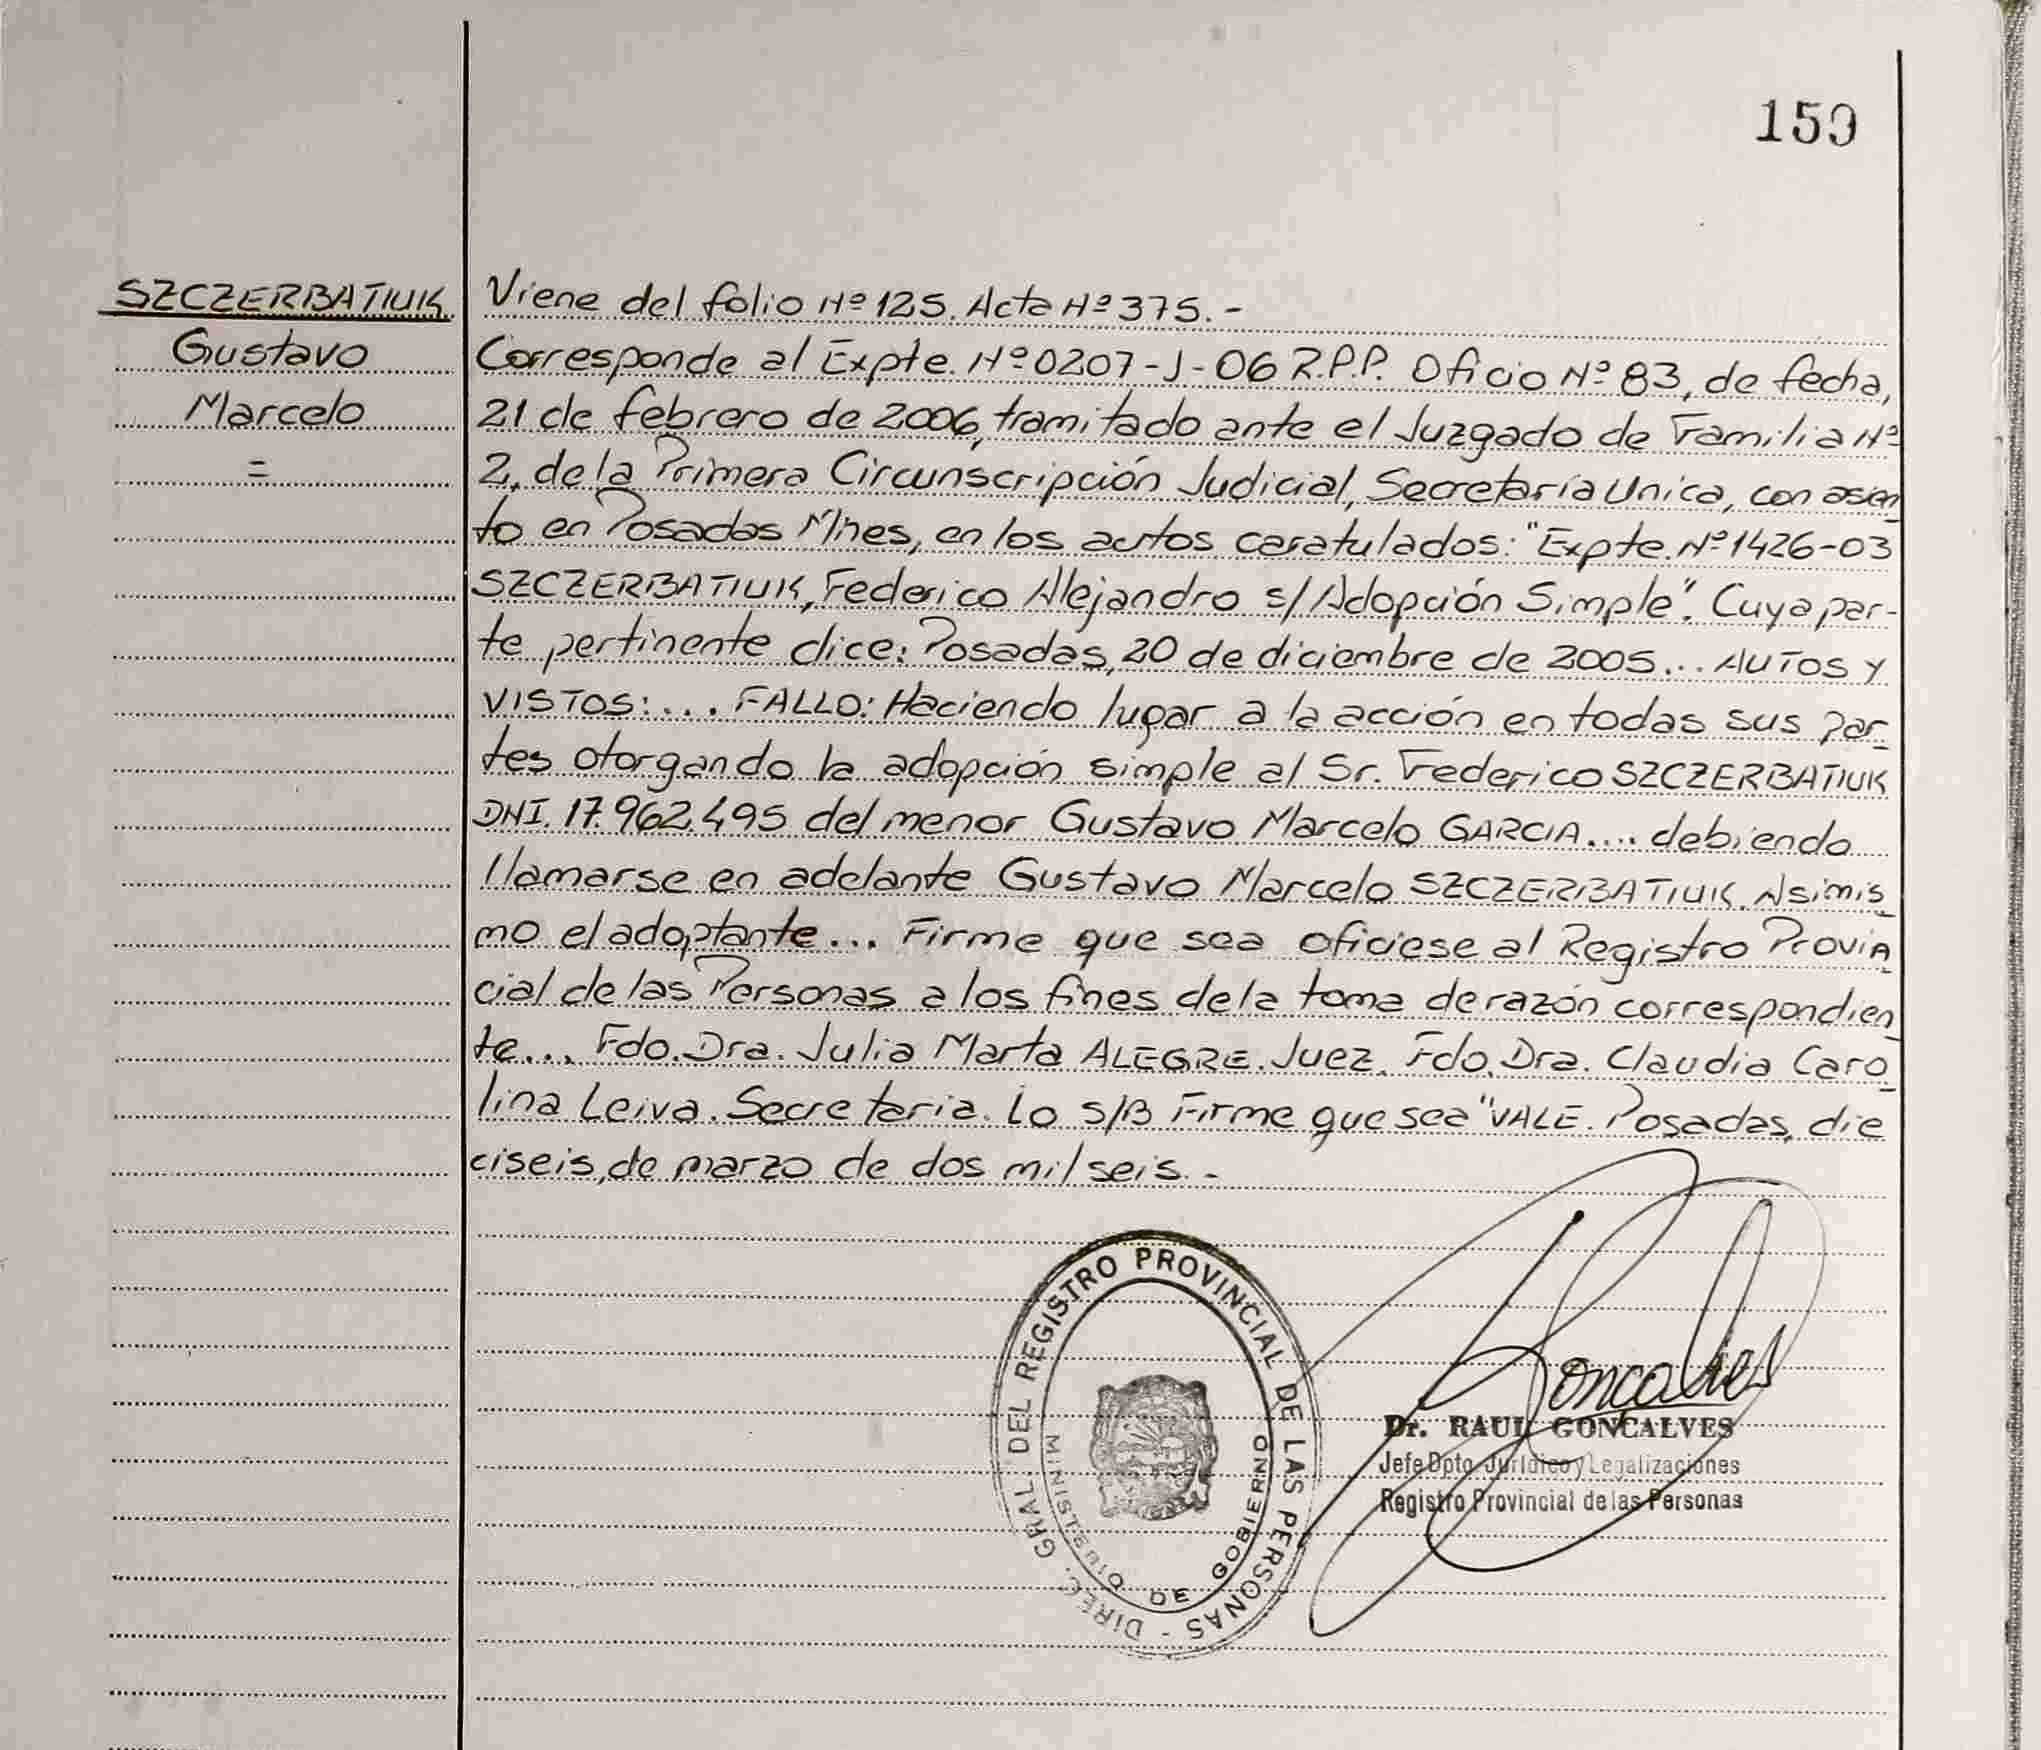 159
SZCZERBATIUK
Gustavo
Marcelo
=
Viene del folio Nº 125. Acta Nº 375.-
Corresponde al Expte. Nº 0207-J-06 R.P.P. Oficio Nº 83, de fecha,
21 de febrero de 2006, tramitado ante el Juzgado de Familia Nº
2, de la Primera Circunscripción Judicial, Secretaría Unica, con asien
to en Posadas Mnes, en los autos caratulados: "Expte. Nº 1426-03
SZCZERBATIUK, Federico Alejandro s/Adopción Simple". Cuya par-
te pertinente dice: Posadas, 20 de diciembre de 2005... AUTOS Y
VISTOS:... FALLO: Haciendo lugar a la acción en todas sus par
tes otorgando la adopción simple al Sr. Federico SZCZERBATIUK
DNI. 17.962.495 del menor Gustavo Marcelo GARCIA.... debiendo
llamarse en adelante Gustavo Marcelo SZCZERBATIUK. Asimis
mo el adoptante... Firme que sea ofíciese al Registro Provin
cial de las Personas a los fines de la toma de razón correspondien
te... Fdo. Dra. Julia Marta ALEGRE. Juez. Fdo. Dra. Claudia Caro
lina Leiva. Secretaria. Lo S/B Firme que sea "VALE. Posadas, die
ciseis, de marzo de dos mil seis.-
DIREC. GRAL DEL REGISTRO PROVINCIAL DE LAS PERSONAS -
MINISTERIO DE GOBIERNO
Gonçalves
Dr. RAUL GONÇALVES
Jefe Dpto. Jurídico y Legalizaciones
Registro Provincial de las Personas